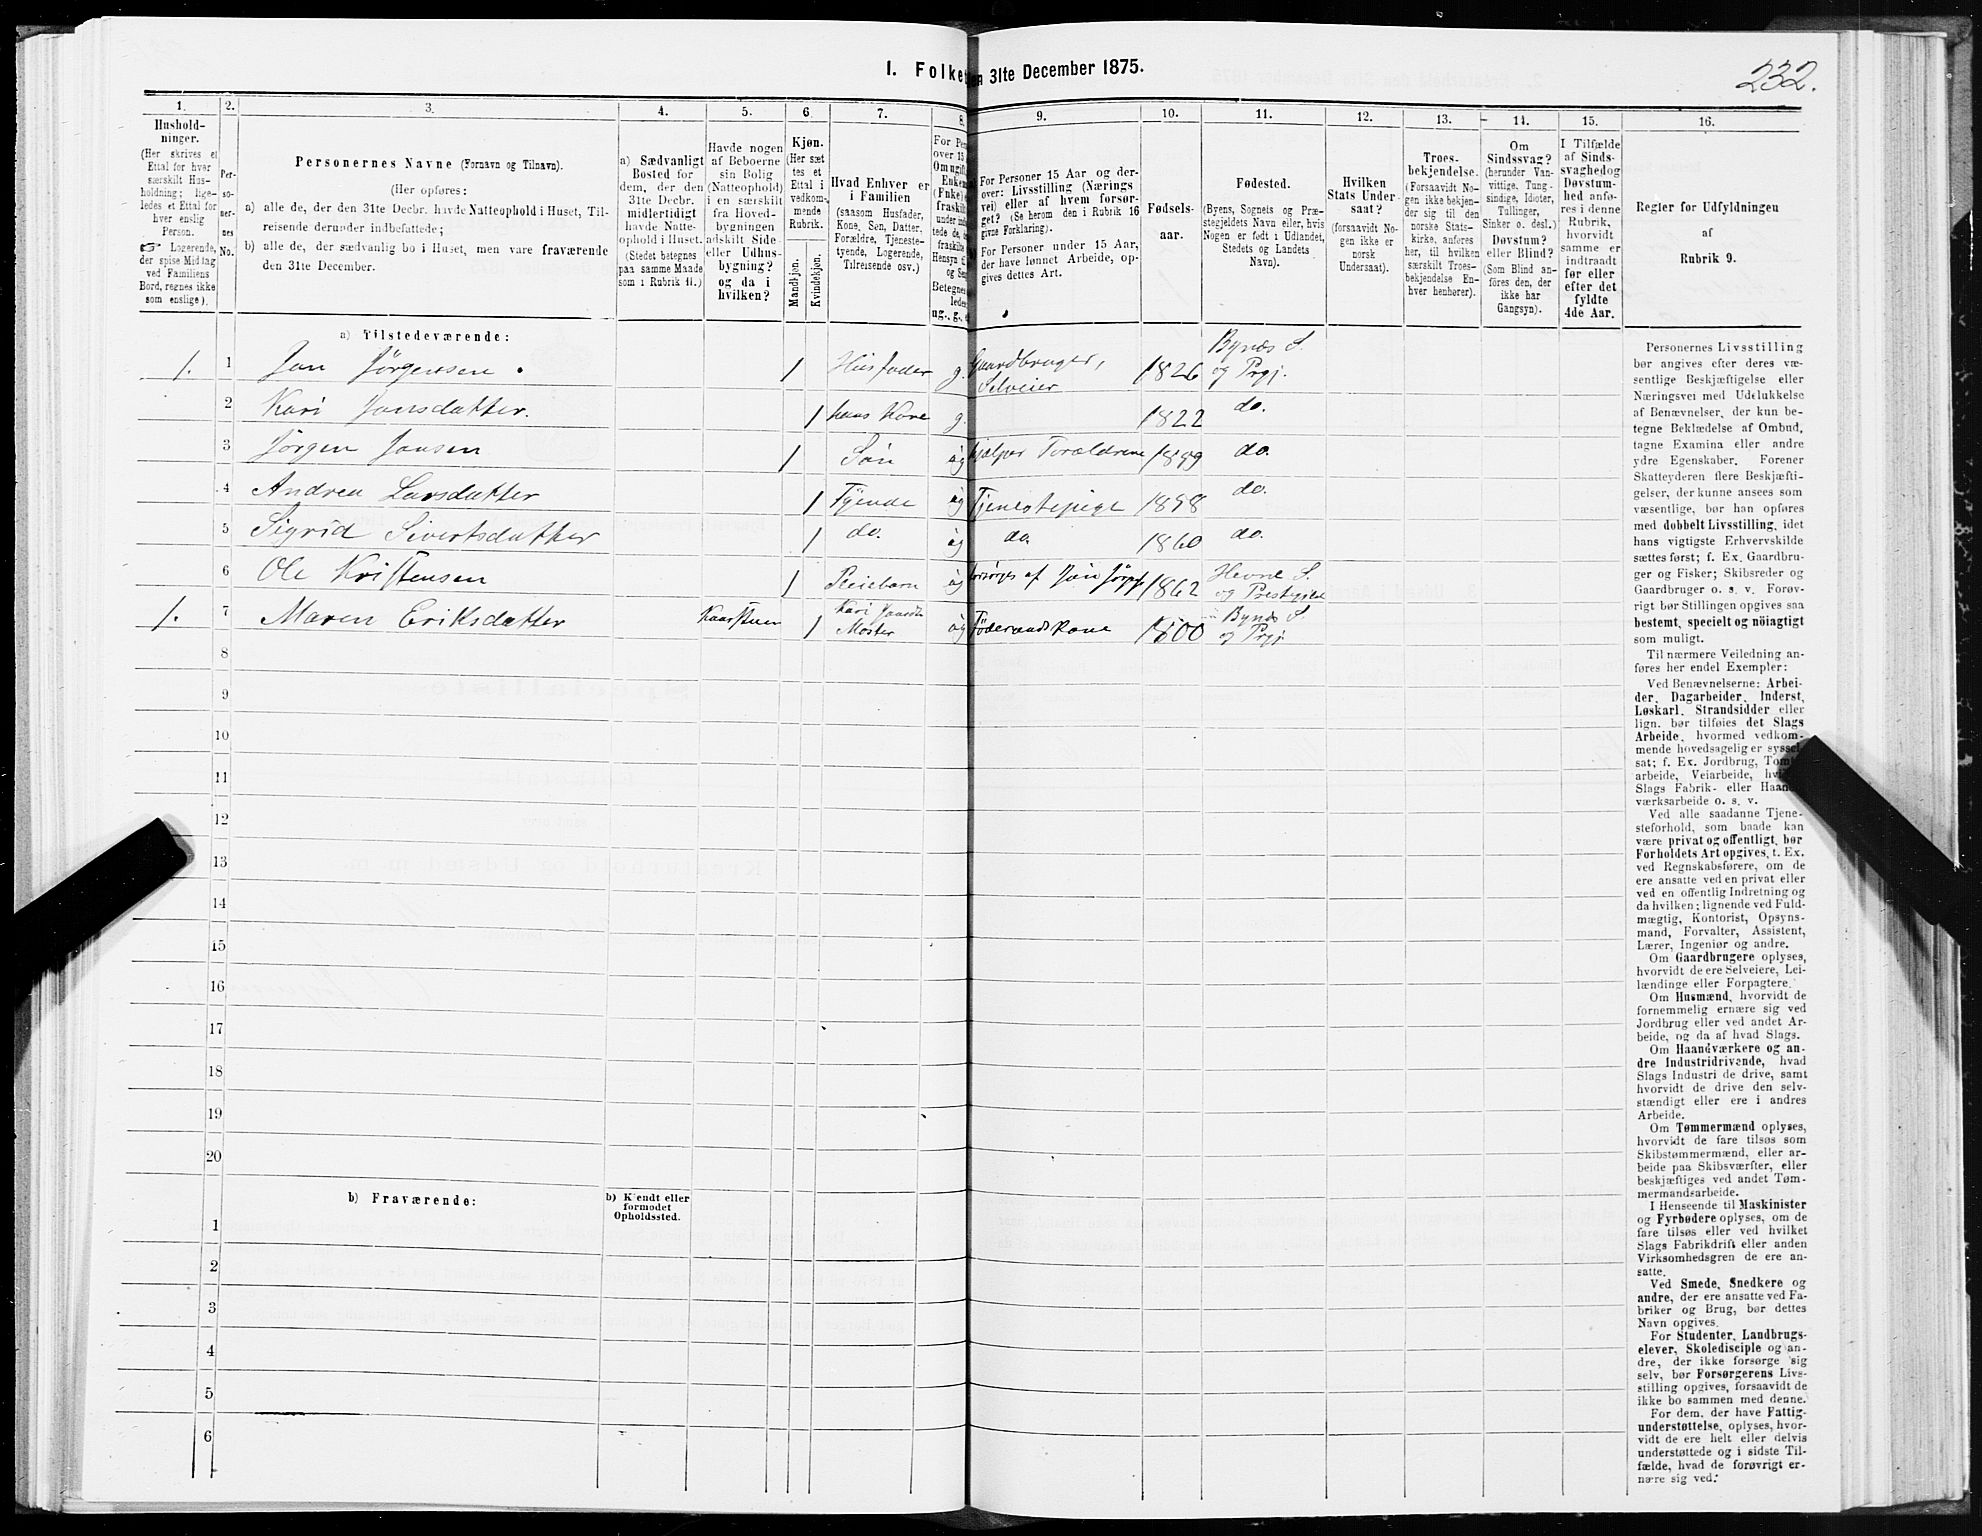 I. Folke
en 31te December 1875.
232.
1.
2.
3.
4.
5.
6
7.
8.
9.
10.
11.
12.
13.
14.
15.
16.
Hushold-
ninger.
(Her skrives et
Ettal for hver
særskilt Hus-
holdning; lige-
ledes et Ettal for
hver enslig
Person.
☞ Logerende,
der spise Middag
ved Familiens
Bord, regnes ikke
som enslige).
Per-
so-
ner-
nes
No.
Personernes Navne (Fornavn og Tilnavn).
(Her opføres:
a) alle de, der den 31te Decbr. havde Natteophold i Huset, Til-
reisende derunder indbefattede;
b) alle de, der sædvanlig bo i Huset, men vare fraværende
den 31te December.
a) Sædvanligt
Bosted for
dem, der den
31te Decbr.
midlertidigt
havde Natte-
ophold i Huset.
(Stedet betegnes
paa samme Maade
som i Rubrik 11.)
Havde nogen
af Beboerne
sin Bolig
(Natteophold)
i en særskilt
fra Hoved-
bygningen
adskilt Side-
eller Udhus-
bygning?
og da i
hvilken?
Kjøn.
(Her sæt
tes et
Ettal i
vedkom-
mende
Rubrik.
Mandkjøn.
Kvindekjøn.
Hvad Enhver er
i Familien
(saasom Husfader,
Kone, Søn, Datter,
Forældre, Tjeneste-
tyende, Logerende,
Tilreisende osv.)
For Pe
over 15
Om ugift
Enkem
(Enke)
fraskilt
under ind
tede de,
fraskilte
Hensyn ti
og Se
Betegne
lede
ug., g., e
For Personer 15 Aar og der-
over: Livsstilling (Nærings
vei) eller af hvem forsør-
get? (Se herom den i Rubrik 16
givne Forklaring).
For Personer under 15 Aar,
der have lønnet Arbeide, op-
gives dettes Art.
Fødsels-
aar.
Fødested.
(Byens, Sognets og Præ-
stegjeldets Navn eller, hvis
Nogen er født i Udlandet,
Stedets og Landets
Navn).
Hvilken
Stats Under-
saat?
(forsaavidt No-
gen ikke er
norsk
Undersaat).
Troes-
bekjendelse.
(Forsaavidt No-
gen ikke bekjen-
der sig til den
norske Stats-
kirke, anføres
her, til hvilken
særskilt Troes-
bekjendelse En-
hver henhører).
Om
Sindssvag?
(herunder Van-
vittige, Tung-
sindige, Idioter,
Tullinger,
Sinker o. desl.)
Døvstum?
eller Blind?
(Som Blind an-
føres den, der
ikke har
Gangsyn).
I Tilfælde
af Sinds-
svaghed og
Døvstum-
hed anfø-
res i denne
Rubrik,
hvorvidt
samme er
indtraadt
før eller
efter det
fyldte
4de Aar.
Regler for Udfyldningen
af
Rubrik 9.
a) Tilstedeværende:
1. 1 Jon Jörgensen . 1 Husfader g. Gaardbruger, Selveier 1826 Bynæs S. og Prgj.
2 Kari Jonsdatter. 1 hans Kone g. 1822 do.
3 Jörgen Jonsen 1 Sön ug hjælper Forældrene 1849 do.
4 Andrea Larsdatter 1 Tyende ug Tjenestepige 1858 do.
5 Sigrid Sivertsdatter 1 do. ug do. 1860 do.
6 Ole Kristensen 1 Pleiebarn ug forsörges af Jon Jörgs 1862 Hevne S. og Prestegjeld
1. 7 Maren Eriksdatter 1 Kari Jonsdtr Moster ug Föderaadskone 1800 Bynæs S. og Prgj
8
9
10
11
12
13
14
15
16
17
18
19
20
b) Fraværende:
b) Kjendt eller
formodet
Opholdssted.
1
2
3
4
5
6
Personernes Livsstilling
bør angives efter deres væ-
sentlige Beskjæftigelse eller
Næringsvei med Udelukkelse
af Benævnelser, der kun be-
tegne Beklædelse af Ombud,
tagne Examina eller andre
ydre Egenskaber. Forener
Skatteyderen flere Beskjæfti-
gelser, der kunne ansees som
væsentlige, bør han opføres
med dobbelt Livsstilling, idet
hans vigtigste Erhvervskilde
sættes først; f. Ex. Gaardbru-
ger og Fisker; Skibsreder og
Gaardbruger o. s. v. Forøv-
rigt bør Stillingen opgives saa
bestemt, specielt og nöiagtigt
som muligt.
Til nærmere Veiledning an-
føres her endel Exempler:
Ved Benævnelserne: Arbei-
der, Dagarbeider, Inderst,
Løskarl, Strandsidder eller
lign. bør tilføies det Slags
Arbeide, hvormed vedkom-
mende hovedsagelig er syssel
sat; f. Ex. Jordbrug, Tomt
arbeide, Veiarbeide, hvi
Slags Fabrik- eller Haand
værksarbeide o. s. v.
Ved alle saadanne Tjene-
steforhold, som baade kan
være privat og offentligt, bør
Forholdets Art opgives, t. Ex.
ved Regnskabsførere, om de
ere ansatte ved en privat eller
ved en offentlig Indretning og
da hvilken; lignende ved Fuld-
mægtig, Kontorist, Opsyns-
mand, Forvalter, Assistent,
Lærer, Ingeniør og andre.
Om Gaardbrugere oplyses,
hvorvidt de ere Selveiere, Lei-
lændinge eller Forpagtere.
Om Husmænd, hvorvidt de
fornemmelig ernære sig ved
Jordbrug eller ved andet Ar-
beide, og da af hvad Slags.
Om Haandværkere og an-
dre Industridrivende, hvad
Slags Industri de drive, samt
hvorvidt de drive den selv-
stændigt eller ere i andres
Arbeide.
Om Tømmermænd oplyses,
hvorvidt de fare tilsøs som
Skibstømmermænd, eller ar-
beide paa Skibsværfter, eller
beskjæftiges ved andet Tøm-
mermandsarbeide.
I Henseende til Maskinister
og Fyrbødere oplyses, om de
fare tilsøs eller ved hvilket
Slags Fabrikdrift eller anden
Virksomhedsgren de ere an-
satte.
Ved Smede, Snedkere og
andre, der ere ansatte ved Fa-
briker og Brug, bør dettes
Navn opgives.
For Studenter, Landbrugs-
elever, Skoledisciple og an-
dre, der ikke forsørge sig
selv, bør Forsørgerens Livs-
stilling opgives, forsaavidt de
ikke bo sammen med denne.
For dem, der have Fattig-
understøttelse, oplyses, hvor-
vidt de ere helt eller delvis
understøttede og i sidste Til-
fælde, hvad de forøvrigt er-
nære sig ved.